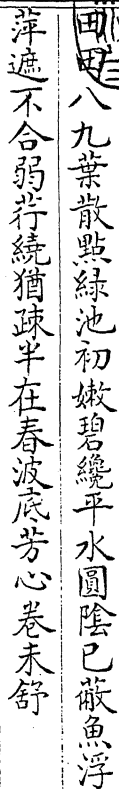 田田八九葉散點綠池初嫩碧纔平水圓陰已蔽魚浮
萍遮不合弱荇繞猶疎半在春波底芳心卷未舒